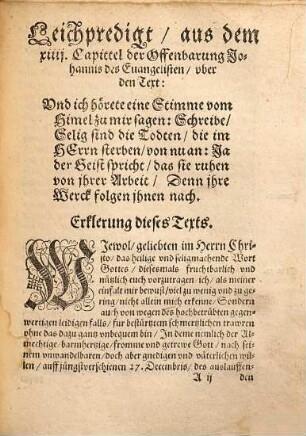 Leichpredigt / aus dem
xiiij. Capittel der Offenbarung Jo-
hannis des Euangelisten / vber
den Text:
Vnd ich hörete eine Stimme vom
Himel zu mir sagen: Schreibe /
Selig sind die Todten / die im
HErrn sterben / von nu an: Ja
der Geist spricht / das sie ruhen
von jhrer Arbeit / Denn jhre
Werck folgen jhnen nach.
Erklerung dieses Texts.
WJewol / geliebten im Herrn Chri-
sto / das heilige vnd seligmachende Wort
Gottes / diesesmals fruchtbarlich vnd
nützlich euch vorzutragen ich / als meiner
einfalt mir bewust / viel zu wenig vnd zu ge-
ring / nicht allein mich erkenne / Sondern
auch von wegen des hochbetrübten gegen-
wertigen leidigen falls / für bestürtzem schmertzlichen trawren
ohne das dazu gantz vnbequem bin / Jn deme nemlich der All-
mechtige / barmhertzige / fromme vnd getrewe Gott / nach sei-
nem vnwandelbaren / doch aber gnedigen vnd väterlichen wil-
len / auff jüngstverschienen 27. Decembris / des auslauffen-
A ij den